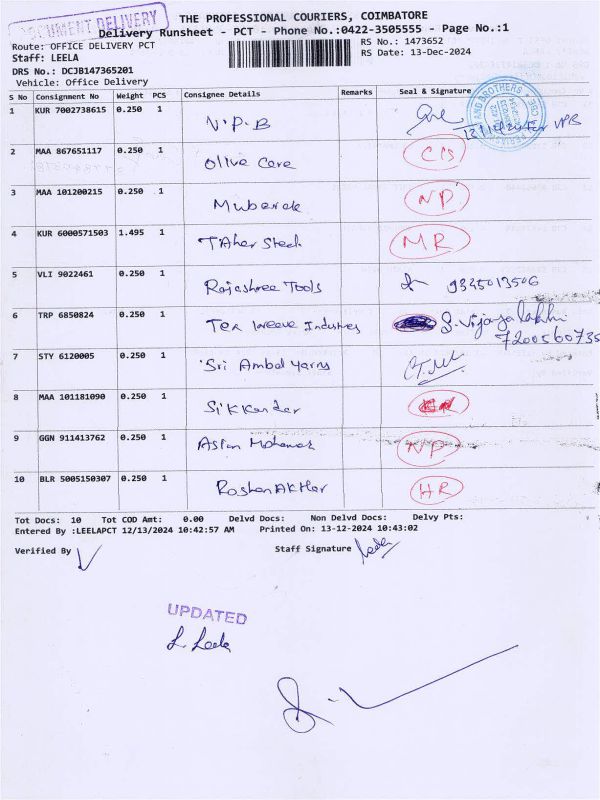 DOCUMENT DELIVERY
THE PROFESSIONAL COURIERS, COIMBATORE
Delivery Runsheet - PCT - Phone No.:0422-3505555 - Page No.:1
Route: OFFICE DELIVERY PCT
RS No.: 1473652
Staff: LEELA
RS Date: 13-Dec-2024
DRS No.: DCJB147365201
Vehicle: Office Delivery
S No Consignment No Weight PCS Consignee Details Remarks Seal & Signature
1 KUR 7002738615 0.250 1 V.P.B
2 MAA 867651117 0.250 1 Olive Care C/S
3 MAA 101200215 0.250 1 Mubarak NP
4 KUR 6000571503 1.495 1 TAher Steel MR
5 VLI 9022461 0.250 1 Rajashree Tools 9345013506
6 TRP 6850824 0.250 1 Tex weave Industries S. Vijayalakhi
7200560735
7 STY 6120005 0.250 1 Sri Ambal yarns
8 MAA 101181090 0.250 1 Sikkander
9 GGN 911413762 0.250 1 NP
10 BLR 5005150307 0.250 1 Roshan AKhtar HR
Tot Docs: 10 Tot COD Amt: 0.00 Delvd Docs: Non Delvd Docs: Delvy Pts:
Entered By :LEELAPCT 12/13/2024 10:42:57 AM Printed On: 13-12-2024 10:43:02
Verified By
Staff Signature Leela
UPDATED
L. Leela